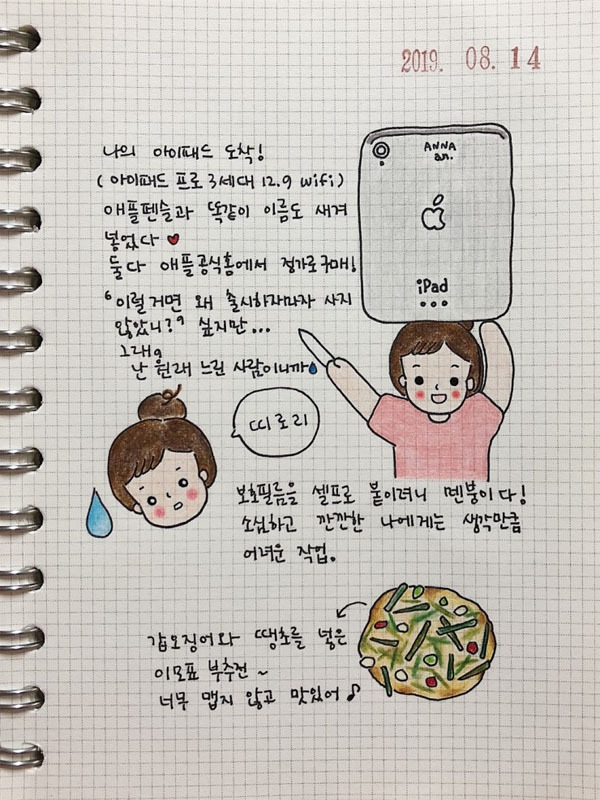 2019. 08. 14
나의 아이패드 도착!
(아이패드 프로 3세대 12.9 wifi)
애플펜슬과 똑같이 이름도 새겨
넣었다
둘다 애플공식홈에서 정가로구매!
'이럴거면 왜 출시하자마자 사지
않았니?' 싶지만...
그래。
난 원래 느린 사람이니까
ANNA
an.
iPad
띠로리
보호필름을 셀프로 붙이려니 멘붕이다!
소심하고 깐깐한 나에게는 생각만큼
어려운 작업。
갑오징어와 땡초를 넣은
이모표 부추전~
너무 맵지 않고 맛있어♪